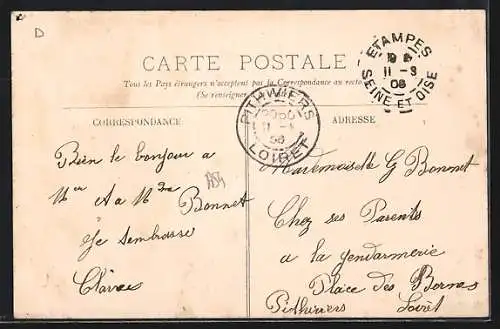 D
CARTE POSTALE
Tous les Pays étrangers n'acceptent pas la Correspondance au recto
(Se renseigner
ETAMPES
11 - 3
06
SEINE ET OISE
PITHIVIERS
06
LOIRET
CORRESPONDANCE
ADRESSE
Bien le bonjour a
Mr et a Mme Bonnet
Je
Mademoiselle G Bonnet
Chez ses Parents
a la gendarmerie
Place des Bornes
Pithiviers Loiret